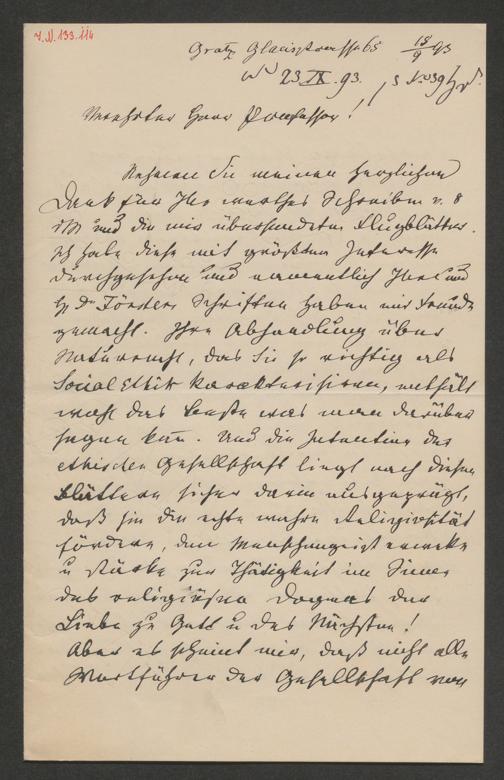 I.N. 133.114
Gratz Glacisstrasse 65 18/9 93
23 IX 93.
Verehrter Herr Professor!
Nehmen Sie meinen herzlichen
Dank für Ihr werthes Schreiben v. 8
und die mir übersendeten Flugblätter.
Ich habe diese mit größtem Interesse
durchgesehen und namentlich Ihre und
H. Dr Försters Schriften haben mir Freude
gemacht. Ihre Abhandlung über
Naturrecht, das Sie so richtig als
Social Ethik karakterisiren, enthält
wohl das Beste was man darüber
sagen kann. Und die Intention der
ethischen Gesellschaft liegt nach diesen
Blättern sicher darin ausgeprägt,
daß sie die echte wahre Religiosität
fördere, den Menschengeist erwecke
u stärke zur Thätigkeit im Sinne
des religiösen Dogmas der
Liebe zu Gott u des Nächsten!
Aber es scheint mir, daß nicht alle
Wortführer der Gesellschaft von